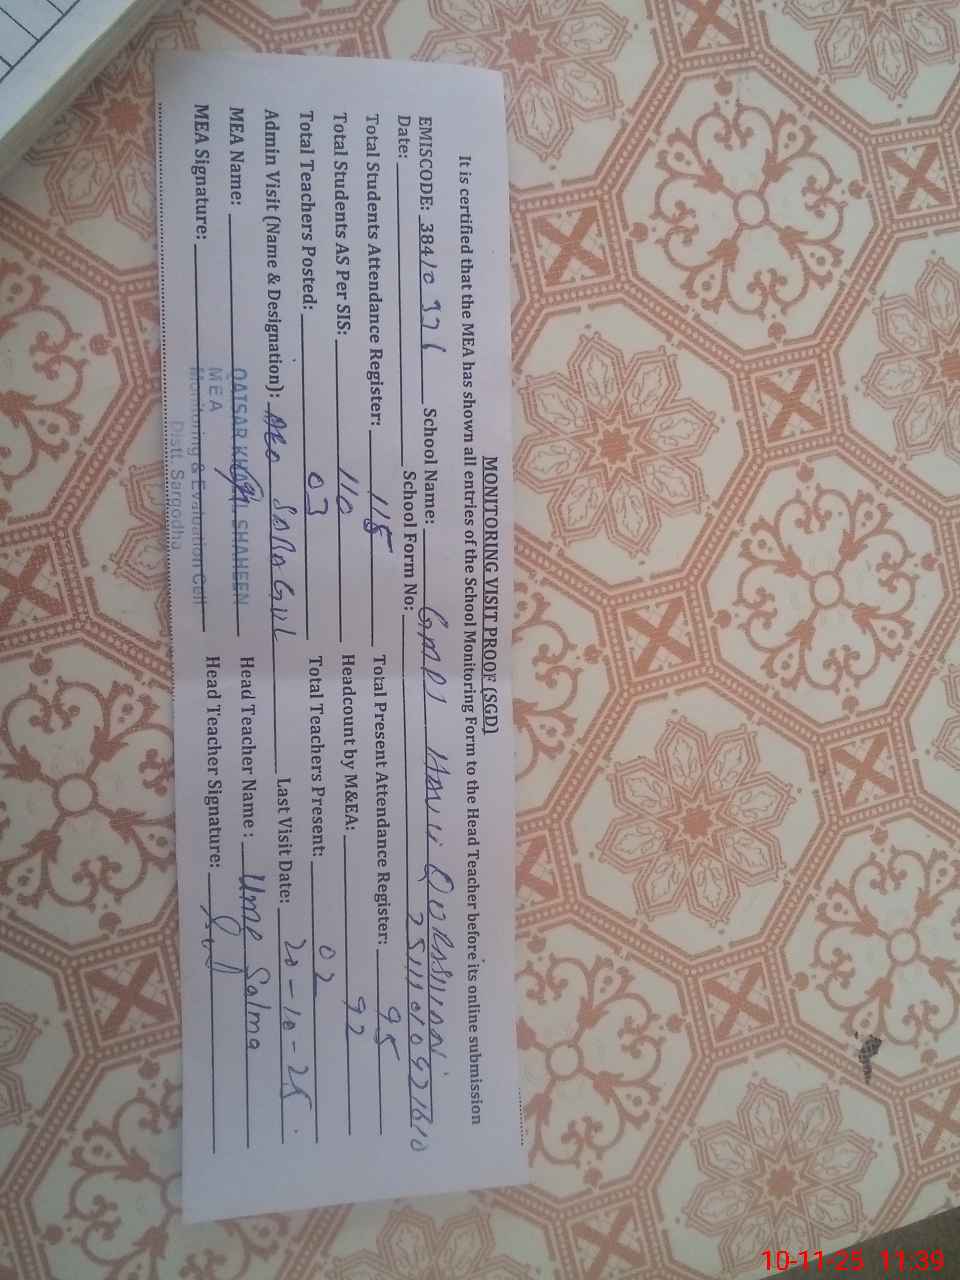 MONITORING VISIT PROOF (SGD)
It is certified that the MEA has shown all entries of the School Monitoring Form to the Head Teacher before its online submission
EMISCODE: School Name: GMPS
Date: School Form No:
Total Students Attendance Register: 115 Total Present Attendance Register: 95
Total Students AS Per SIS: 110 Headcount by M&EA: 92
Total Teachers Posted: 03 Total Teachers Present: 02
Admin Visit (Name & Designation): Last Visit Date: 20-10-25
MEA Name: QAISAR SHAHEEN Head Teacher Name: Salma
MEA Signature: MEA Head Teacher Signature:
Monitoring & Evaluation Cell
Distt. Sargodha
10-11-25 11:39